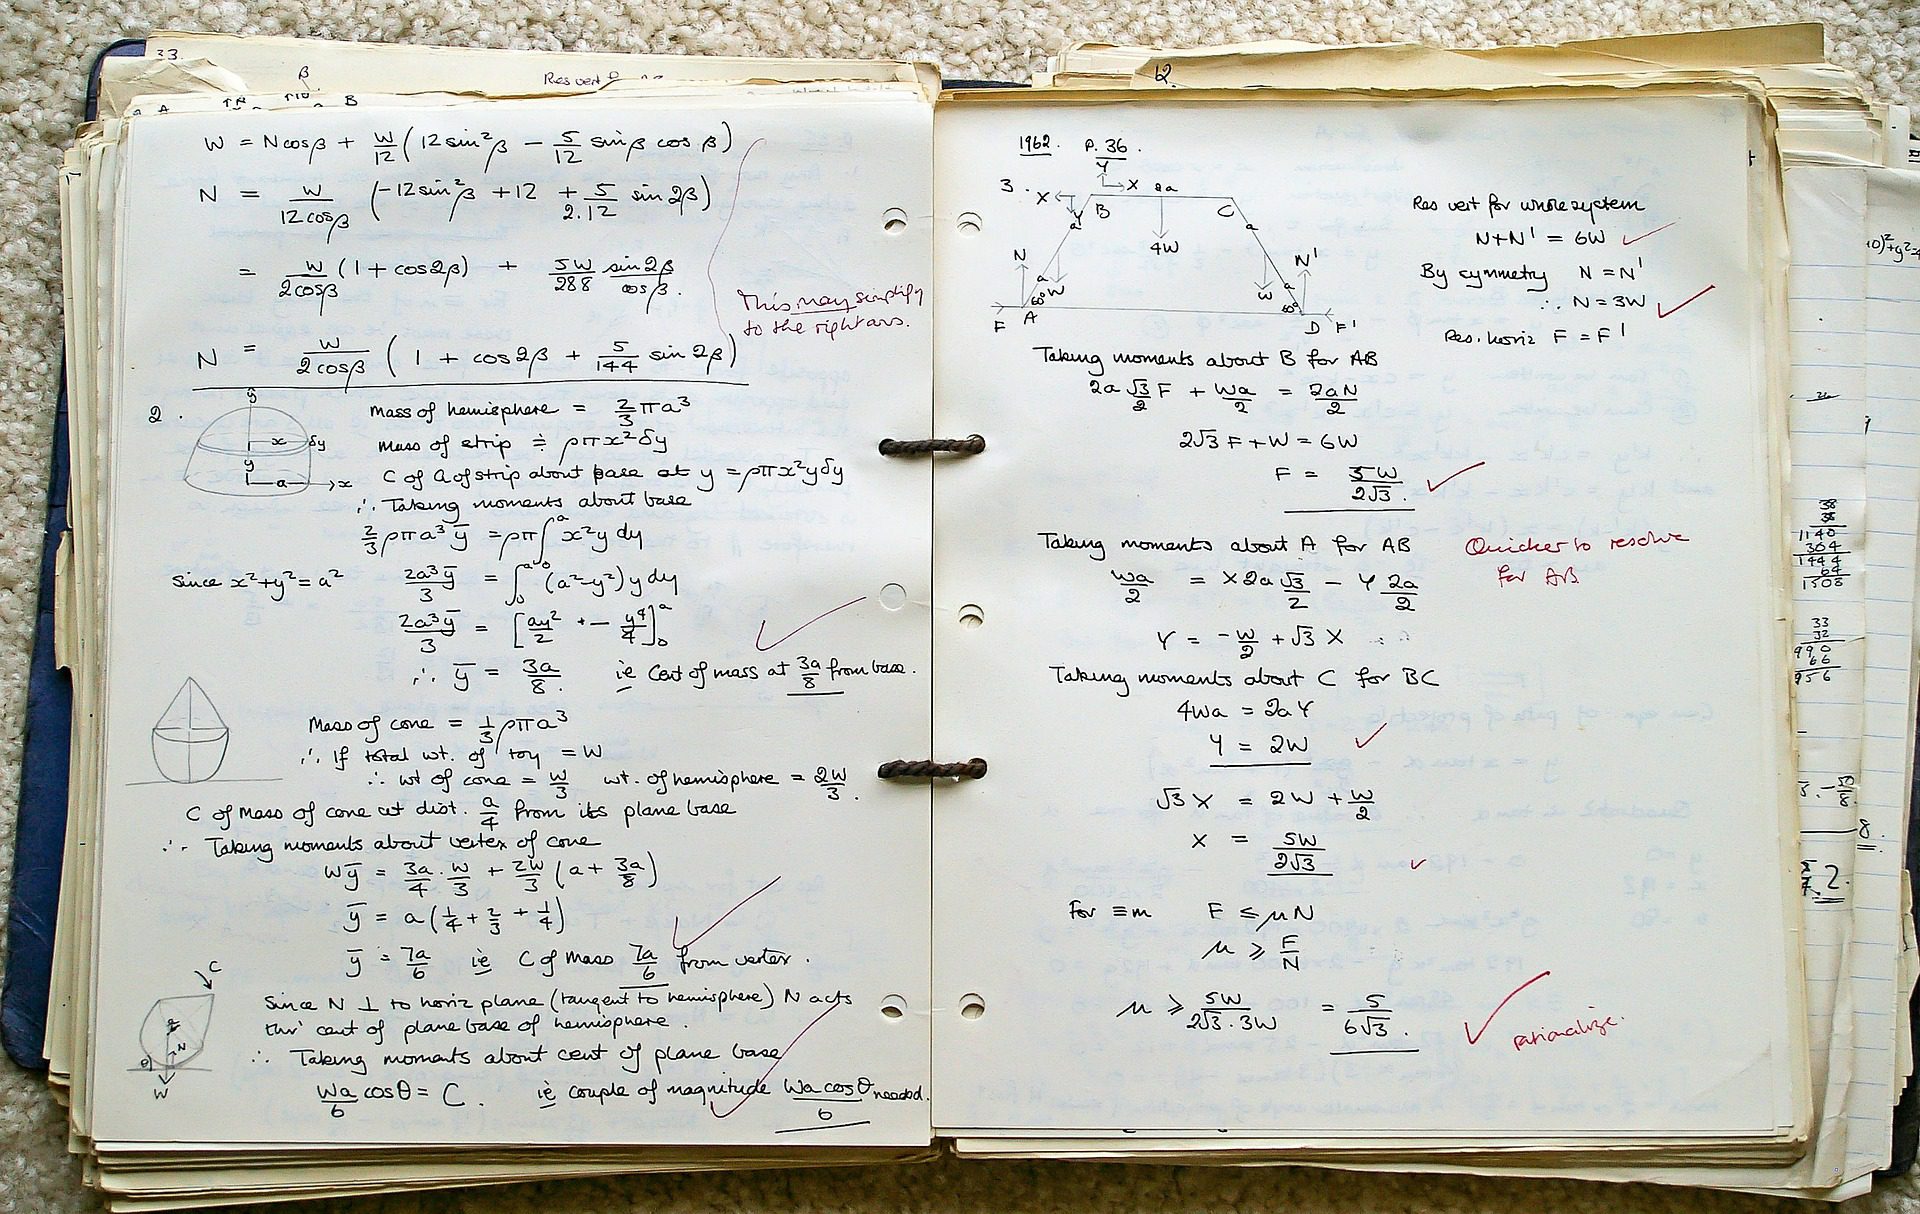 33.
β
Res vert
A B
W = N cosβ + W/12 (12 sin²β − 5/12 sinβ cos β)
N = W/12cosβ (−12sin²β + 12 + 5/2.12 sin 2β)
= W/2cosβ (1 + cos2β) + 5W/288 sin2β/cosβ.
This may simplify
to the right ans.
N = W/2cosβ (1 + cos2β + 5/144 sin 2β)
2.
ȳ
x δy
y
a x
Mass of hemisphere = 2/3 πa³
Mass of strip ≑ ρπx²δy
C of G of strip about base at y = ρπx²yδy
∴ Taking moments about base
2/3 ρπa³ȳ = ρπ∫ᵃ x²y dy
Since x²+y²=a² 2a³ȳ/3 = ∫₀ᵃ (a²−y²) y dy
2a³ȳ/3 = [ay²/2 − y⁴/4]₀ᵃ
∴ ȳ = 3a/8. ie Cent of mass at 3a/8 from base.
Mass of cone = 1/3 ρπa³
∴ If total wt. of toy = W
∴ wt of cone = W/3 wt. of hemisphere = 2W/3.
C of Mass of cone at dist. a/4 from its plane base
∴ Taking moments about vertex of cone
Wȳ = 3a/4 . W/3 + 2W/3 (a + 3a/8)
ȳ = a(1/4 + 2/3 + 1/4)
ȳ = 7a/6 ie C of Mass 7a/6 from vertex.
C
N
θ
W
Since N ⊥ to horiz plane (tangent to hemisphere) N acts
thr' cent of plane base of hemisphere.
∴ Taking moments about cent of plane base
Wa/6 cosθ = C. ie couple of magnitude Wa cosθ/6 needed.
12
1962. P. 36.
3.
Y
X X 2a
Y B C
a a
4W
N N'
a W W a
60° 60°
F A D F'
Res vert for whole system
N+N' = 6W
By symmetry N = N'
∴ N = 3W
Res. horiz F = F'
Taking moments about B for AB
2a √3/2 F + Wa/2 = 2aN/2
2√3 F + W = 6W
F = 5W/2√3.
Taking moments about A for AB
Quicker to resolve
for AB
Wa/2 = X 2a √3/2 − Y 2a/2
Y = −W/2 + √3 X
Taking moments about C for BC
4Wa = 2aY
Y = 2W
√3 X = 2W + W/2
X = 5W/2√3
For ≡m F ≤ μN
μ ≥ F/N
μ ≥ 5W/2√3.3W = 5/6√3.
rationalize.
38
38
1140
304
1444
64
1508
33
32
990
66
956
8.
2.